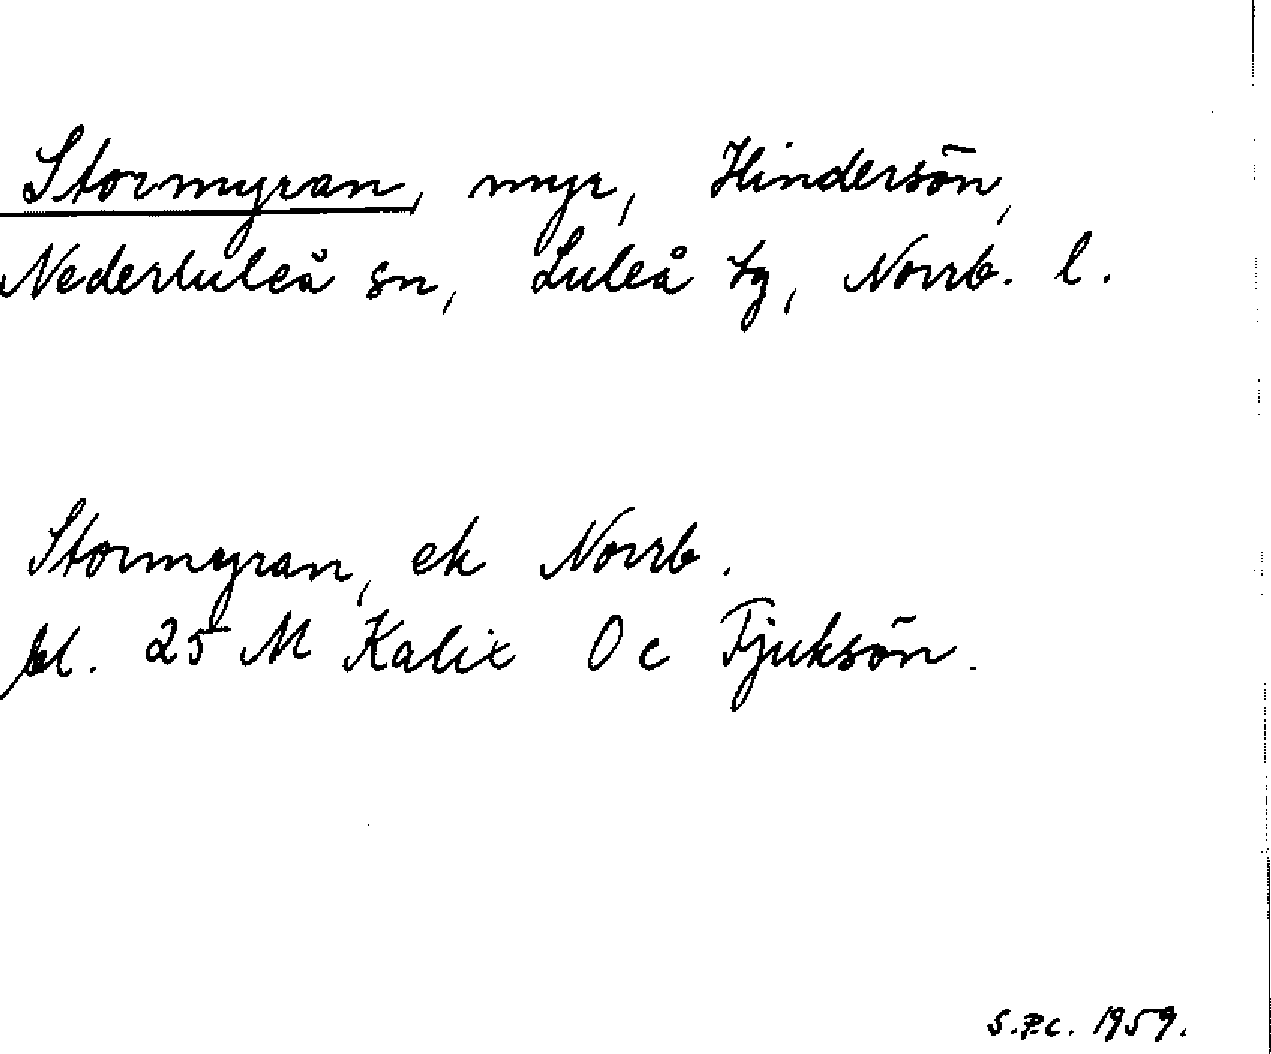 Stormyran, myr, Hindersön,
Nederluleå sn, Luleå tg, Norrb. l.
Stormyran, ek Norrb.
bl. 25 M Kalix O c Fjuksön.
S.P.C. 1959.